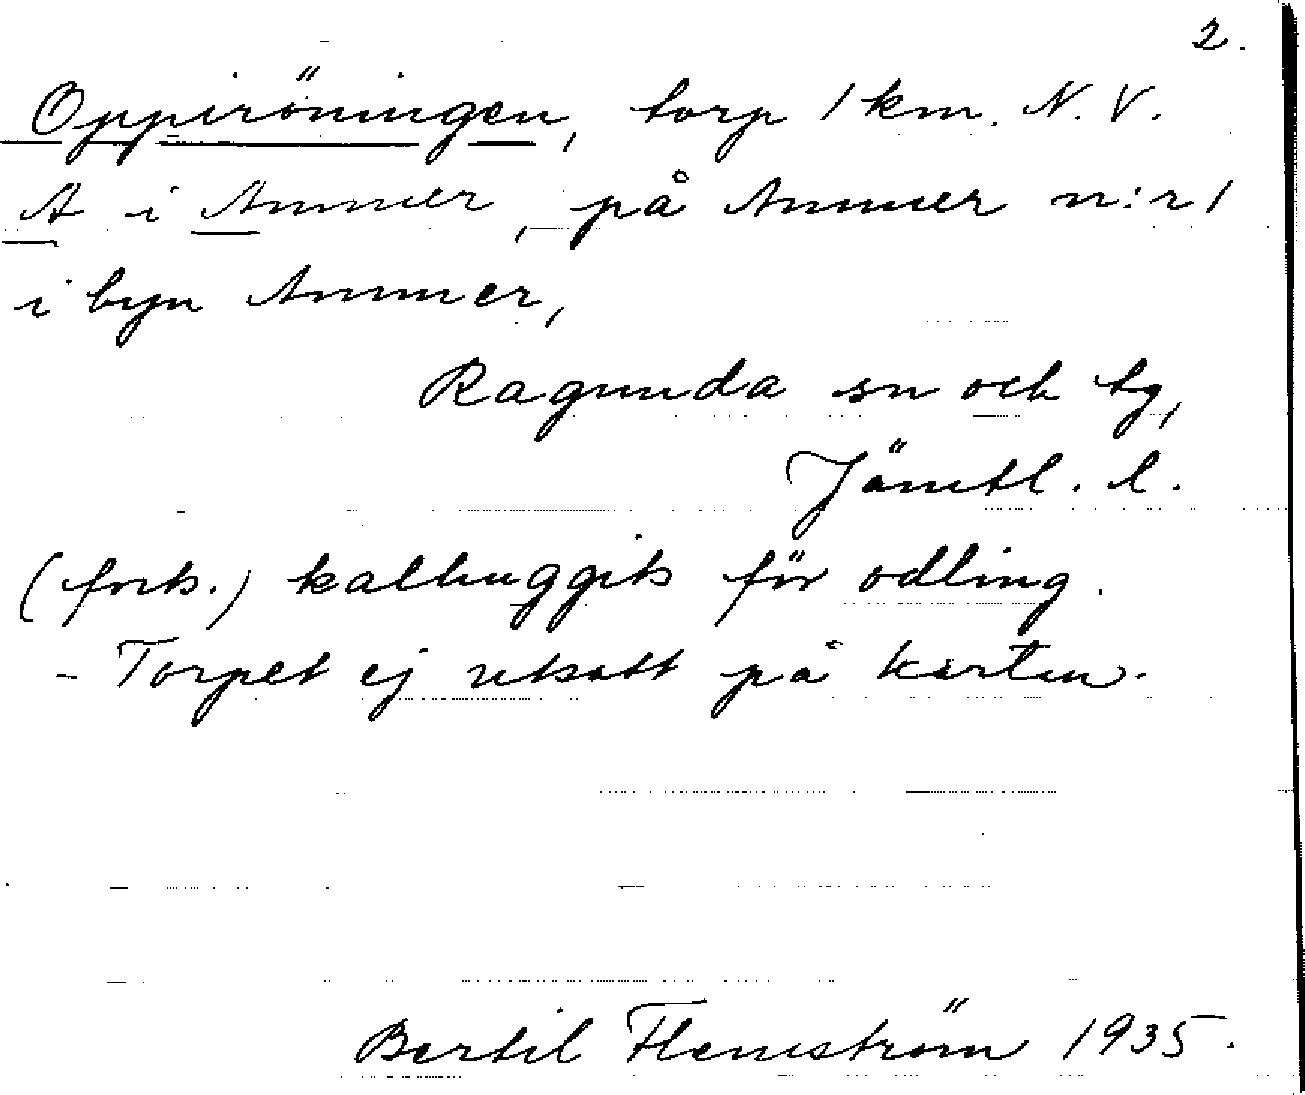 2.
Oppiröningen, torp 1 km. N.V.
A i Ammer, på Ammer n:r 1
i byn Ammer,
Ragunda sn och tg,
Jämtl. l.
(forts.) kalhuggits för odling.
- Torpet ej utsatt på kartan.
Bertil Flemström 1935.